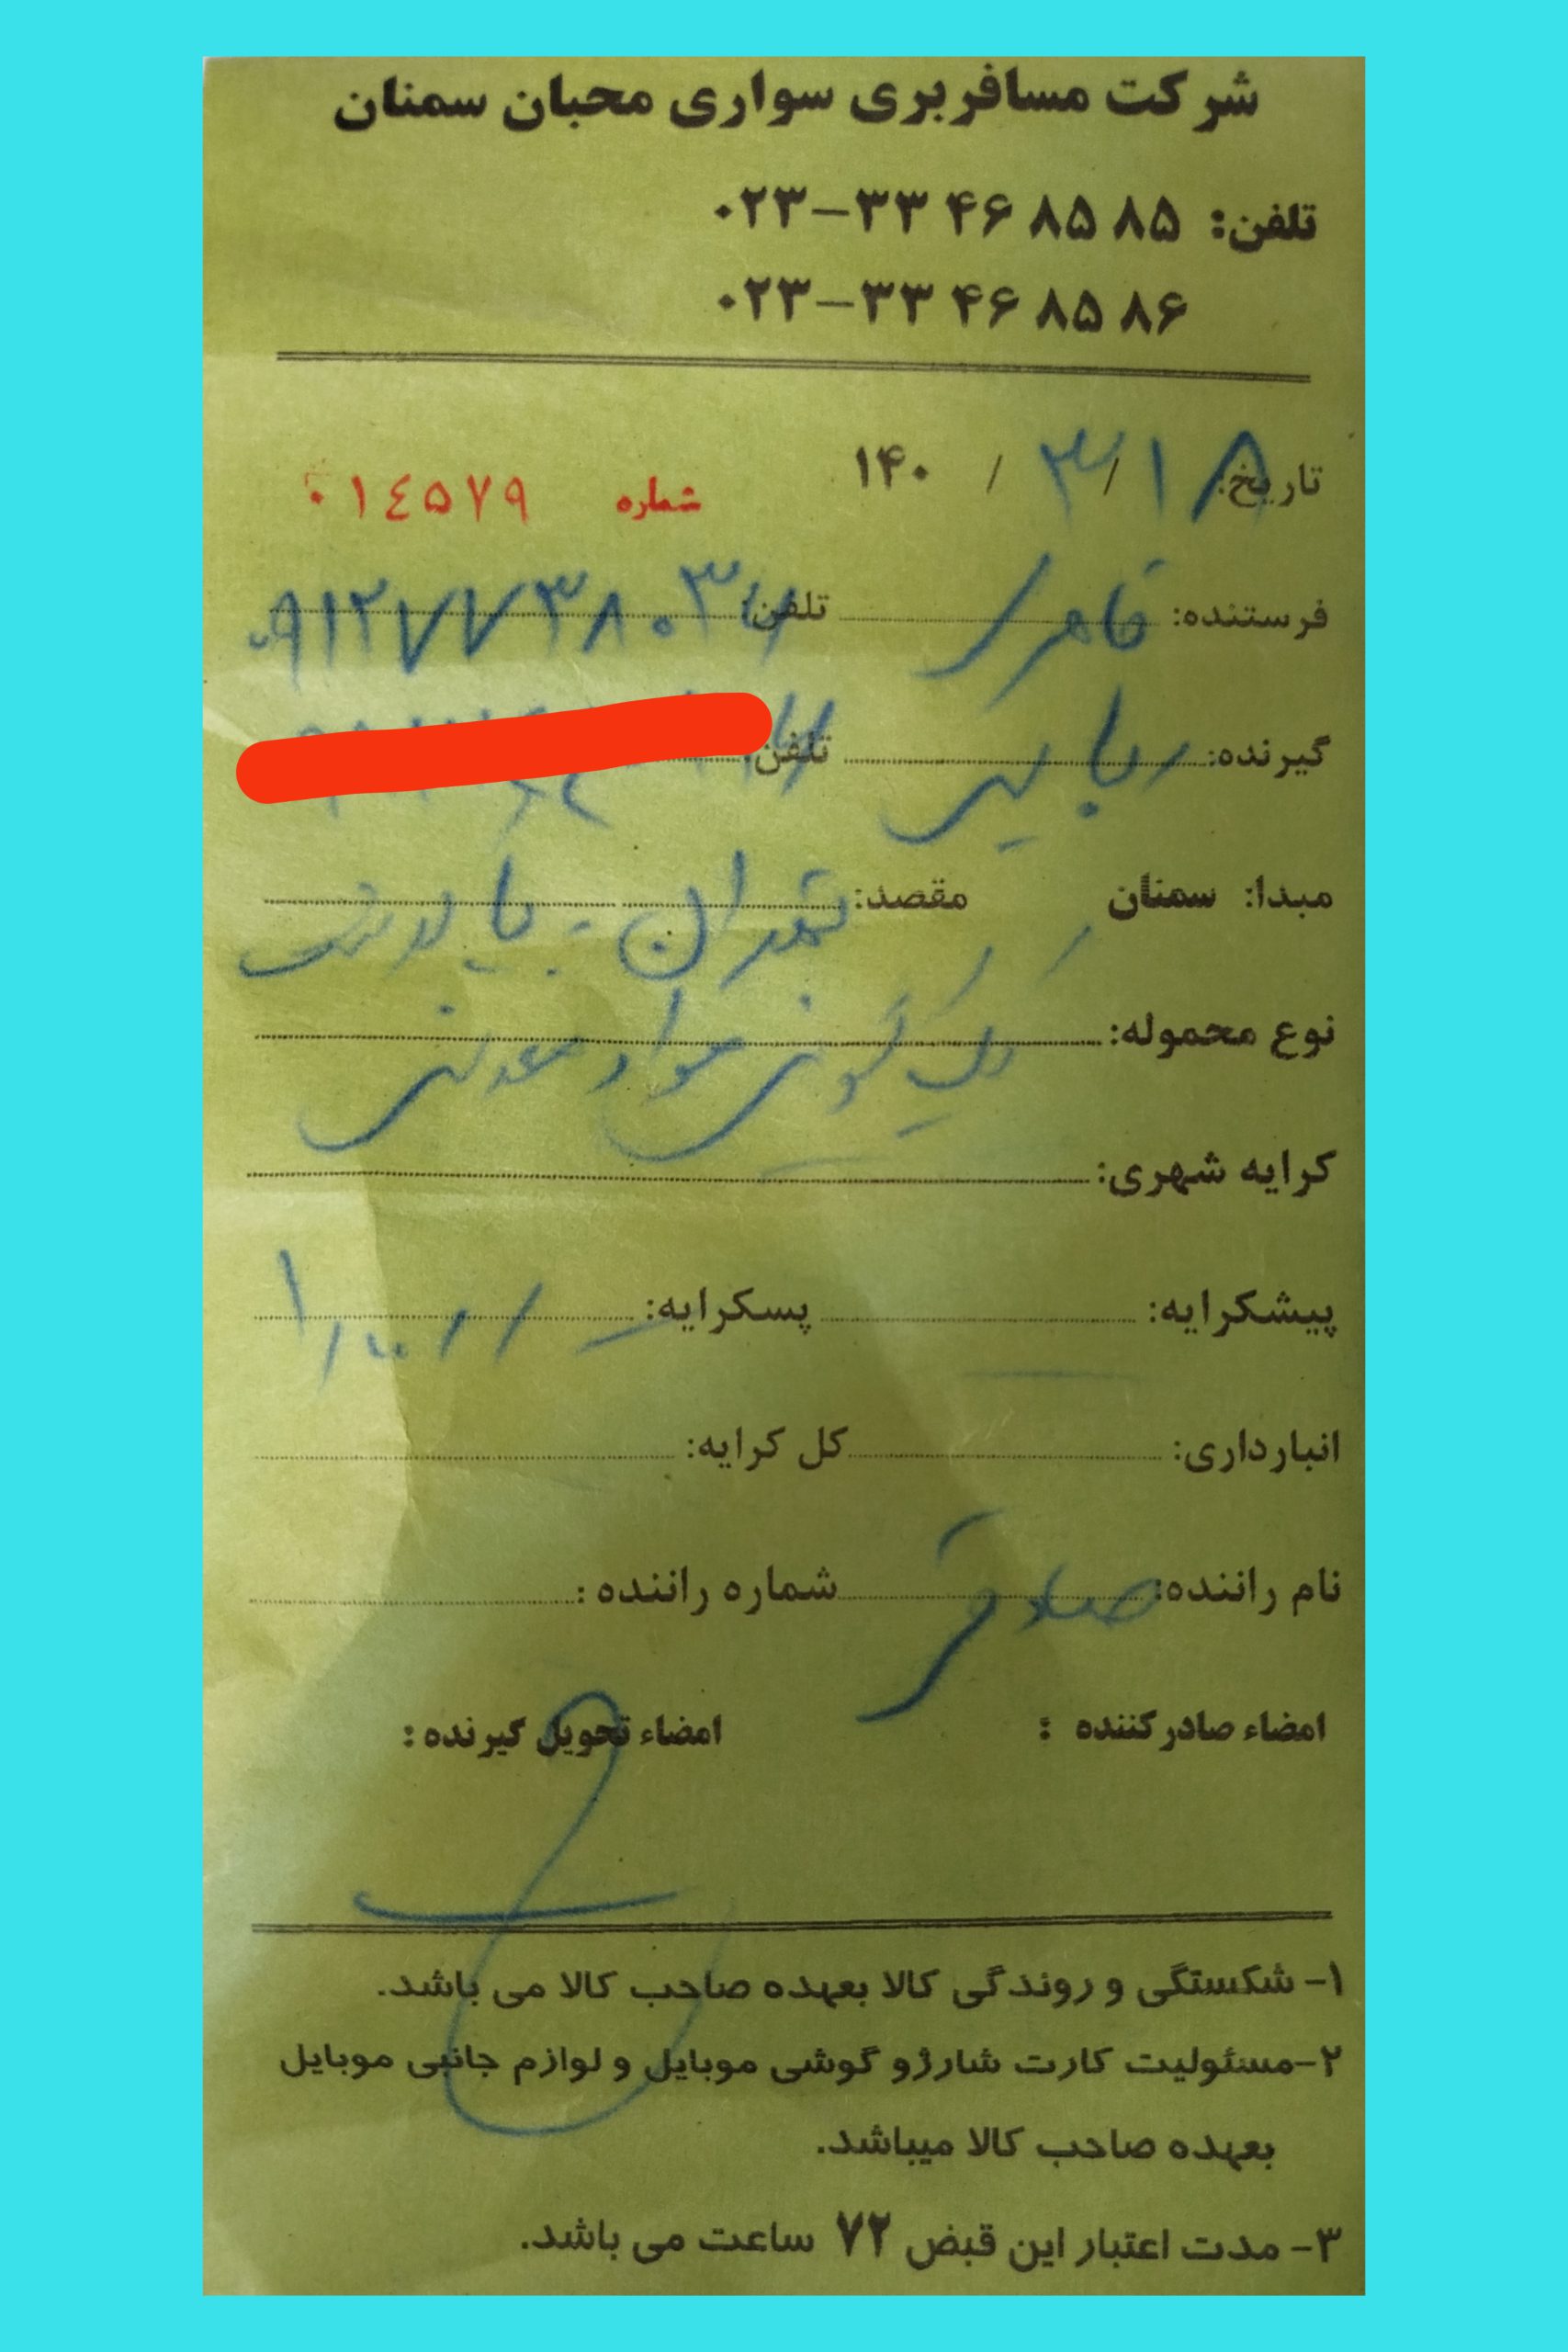 شرکت مسافربری سواری محبان سمنان
تلفن: ۰۲۳-۳۳ ۴۶ ۸۵ ۸۵
۰۲۳-۳۳ ۴۶ ۸۵ ۸۶
تاریخ: ۱۸ / ۳ / ۱۴۰ شماره ۰۱٤٥٧٩
فرستنده: تلفن:
گیرنده: تلفن:
مبدا: سمنان مقصد: تهران -
نوع محموله: یک گونی مواد معدنی
کرایه شهری:
پیشکرایه: پسکرایه:
انبارداری: کل کرایه:
نام راننده: شماره راننده :
امضاء صادر کننده : امضاء تحویل گیرنده :
۱- شکستگی و روندگی کالا بعهده صاحب کالا می باشد.
۲-مسئولیت کارت شارژو گوشی موبایل و لوازم جانبی موبایل
بعهده صاحب کالا میباشد.
۳- مدت اعتبار این قبض ۷۲ ساعت می باشد.